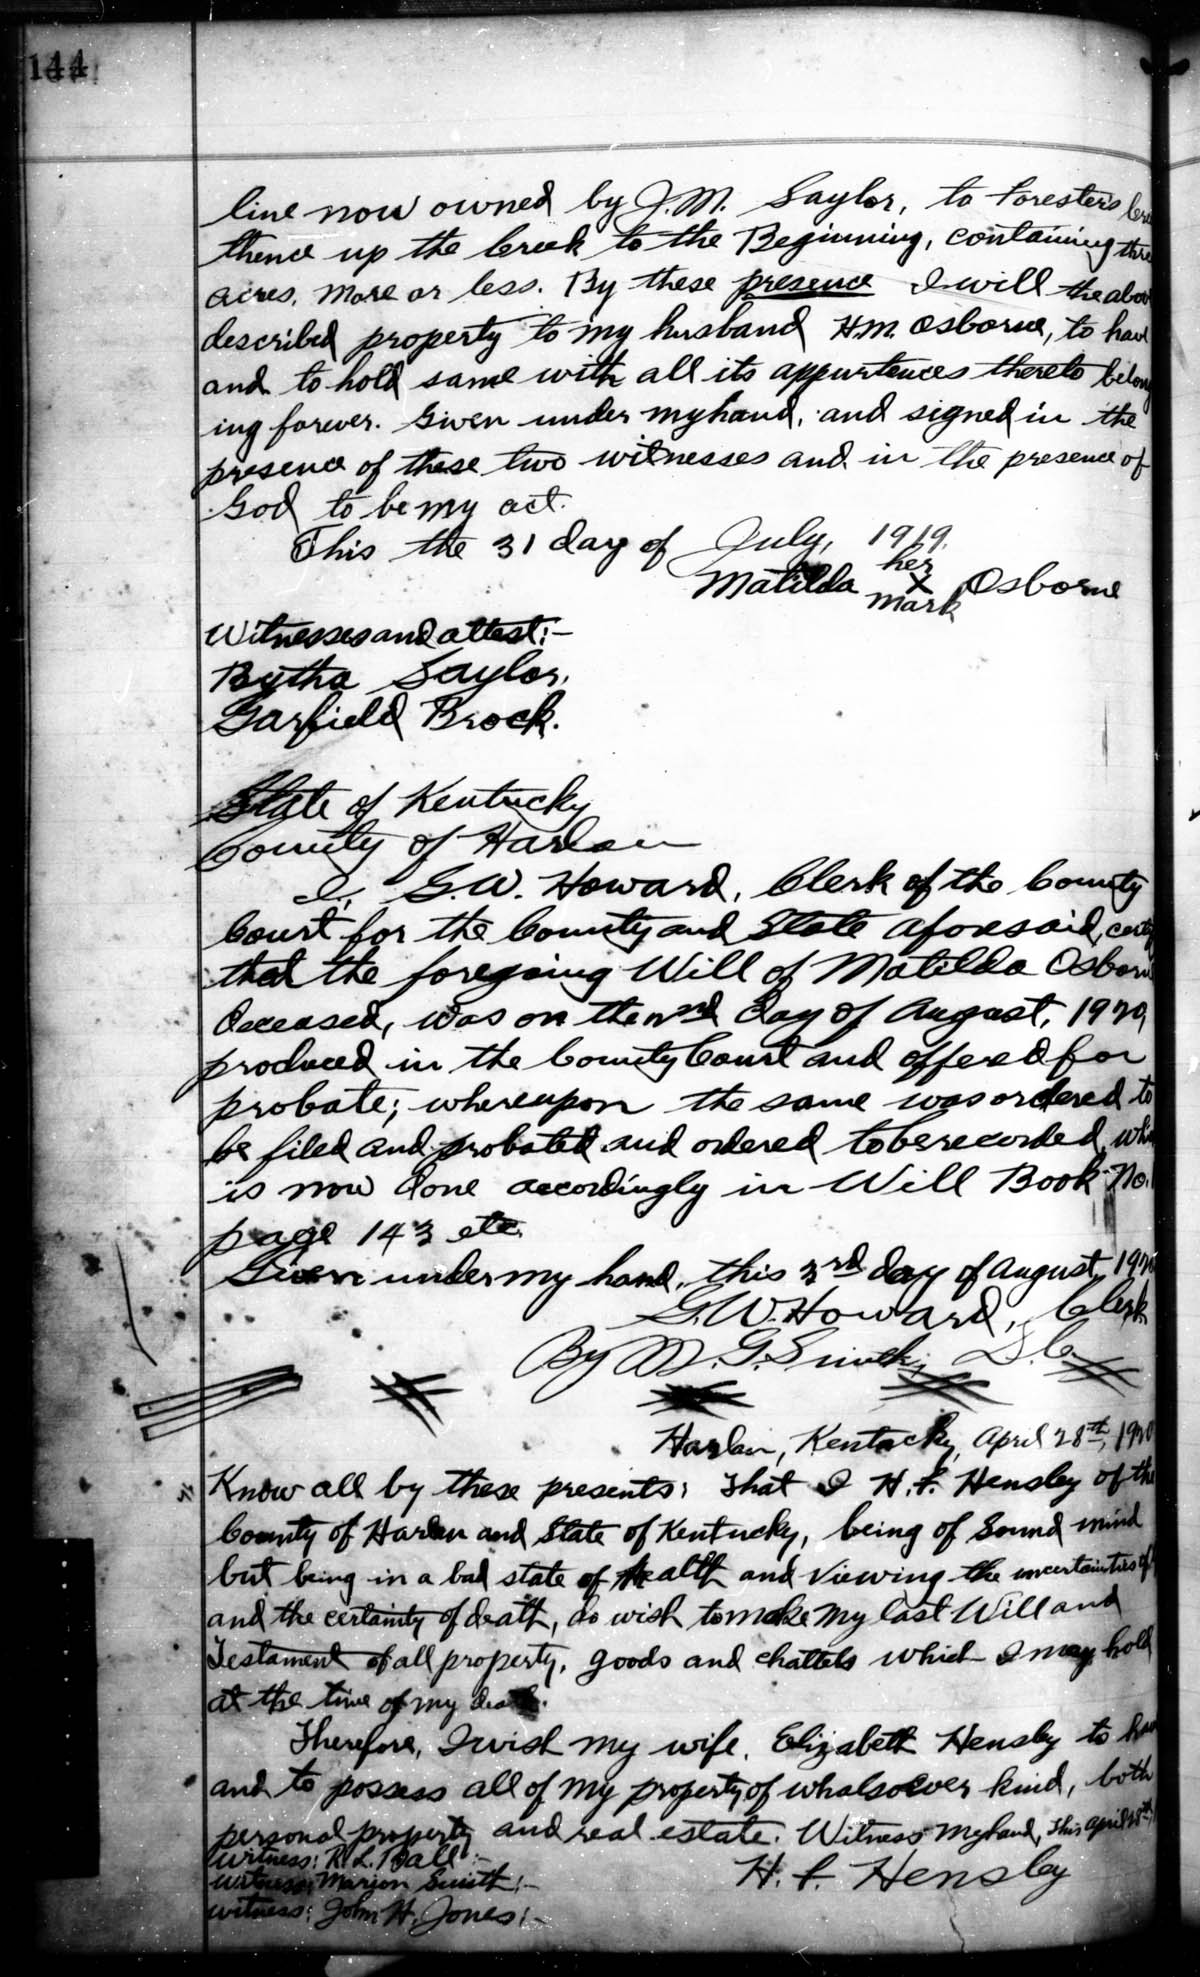 144
line now owned by J.M. Saylor, to Foresters
thence up the Creek to the Beginning, containing three
acres, more or less. By these presence I will the above
described property to my husband H.M. Osborne, to have
and to hold same with all its appurtences thereto belong
ing forever. Given under my hand, and signed in the
presence of these two witnesses and in the presence of
God to be my act.
This the 31 day of July, 1919.
her
Matilda X Osborne
mark
Witnesses and attest:-
Saylor,
Garfield Brock.
State of Kentucky
County of Harlan
I, G.W. Howard, Clerk of the County
Court for the County and State aforesaid, certify
that the foregoing Will of Matilda Osborne
deceased, was on the 2nd day of August, 1920,
produced in the County Court and offered for
probate; whereupon the same was ordered to
be filed and probated and ordered to be recorded, which
is now done accordingly in Will Book No.
page 143 etc.
Given under my hand, this 3rd day of August, 1920
G.W. Howard, Clerk
By M. G. Smith, D.C.
Harlan, Kentucky, April 28th, 1920
Know all by these presents: That I H. F. Hensley of the
County of Harlan and State of Kentucky, being of Sound mind
but being in a bad state of Health and Viewing the uncertainties of
and the certainty of death, do wish to make my last Will and
Testament of all property, goods and chattels which I may hold
at the time of my death.
Therefore, I wish my wife, Elizabeth Hensley to have
and to possess all of my property of whatsoever kind, both
personal property and real estate. Witness my hand, this April 28th,
witness: R. L. Ball:-
H. F. Hensley
witness: Marion Smith:-
witness: John H. Jones:-